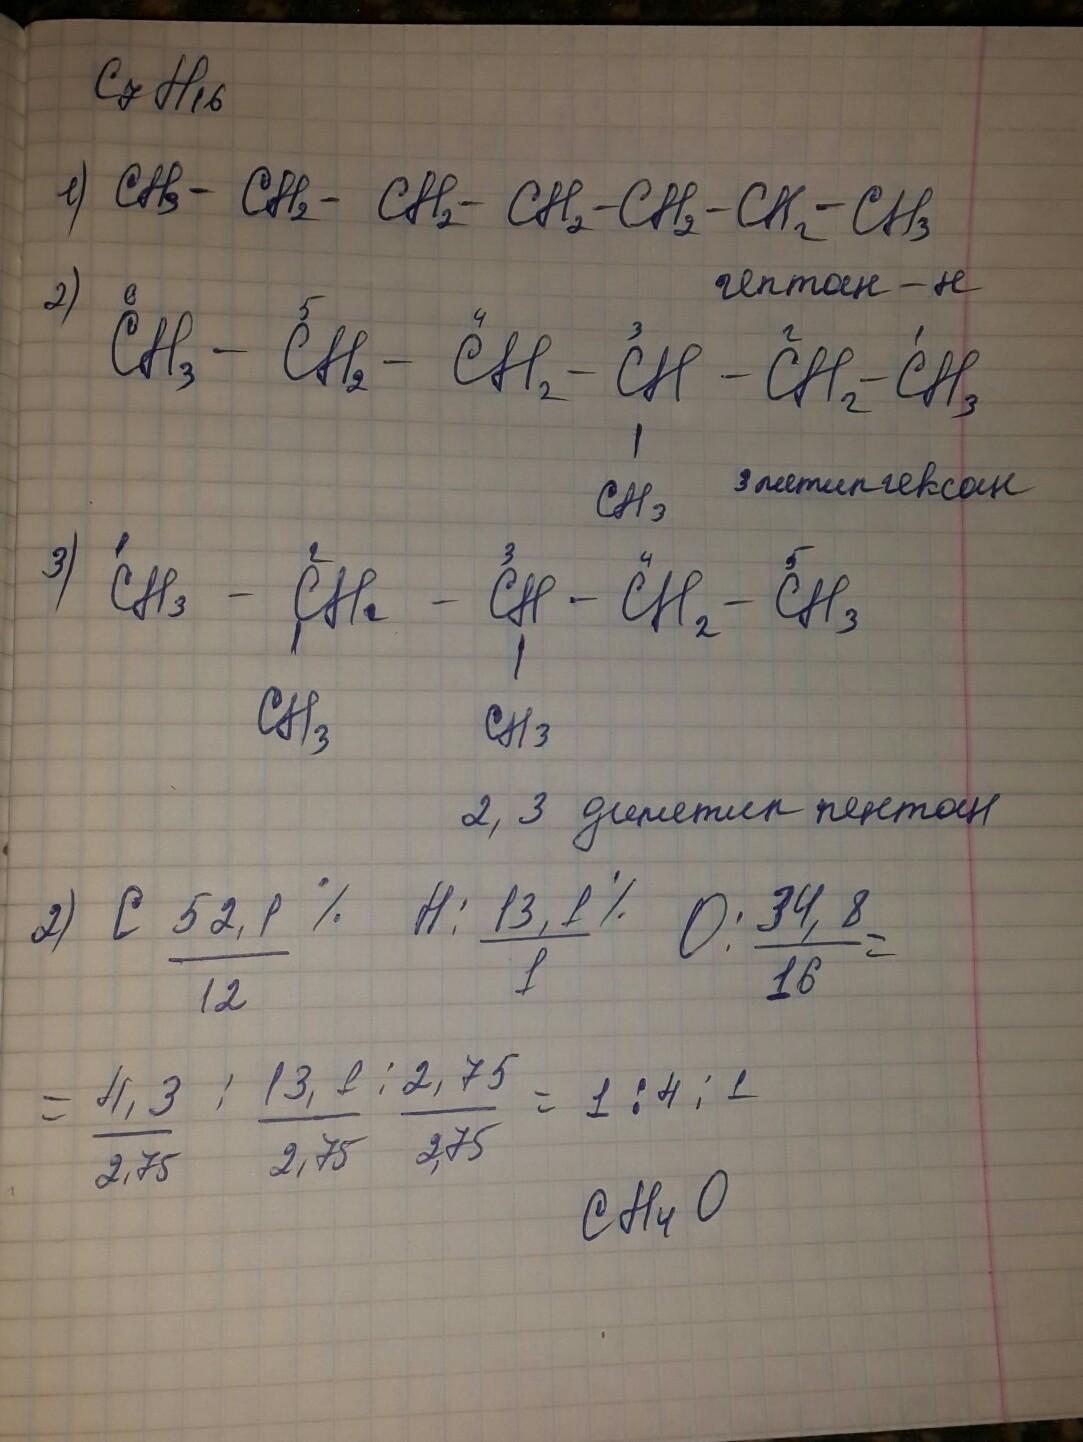 C₇H₁₆
1) CH₃ - CH₂ - CH₂ - CH₂ - CH₂ - CH₂ - CH₃
гептан - н
2) 6 5 4 3 2 1
CH₃ - CH₂ - CH₂ - CH - CH₂ - CH₃
|
CH₃ 3 метилгексан
3) 1 2 3 4 5
CH₃ - CH₂ - CH - CH₂ - CH₃
| |
CH₃ CH₃
2, 3 диметил пентан
2) C 52,1 % / 12 H: 13,1 % / 1 O: 34,8 / 16 =
= 4,3 / 2,75 : 13,1 / 2,75 : 2,75 / 2,75 = 1 : 4 : 1
CH₄O